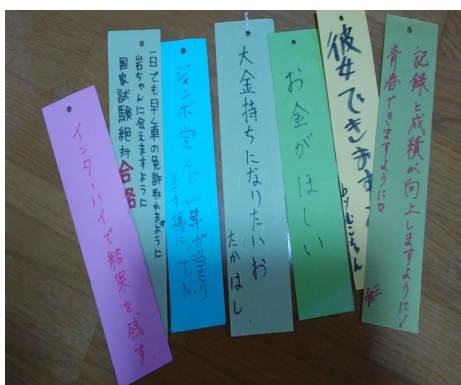 インターハイで結果を残す.
一日でも早く車の免許取れますように
岩ちゃんに会えますように
国家試験絶対合格
ジャンボ宝くじ一等が当たり
T.N.
大金持ちになりたいお
たかはし.
お金がほしい
彼女できます
byむこちゃん
記録と成績が向上しますように!
青春できますように♡